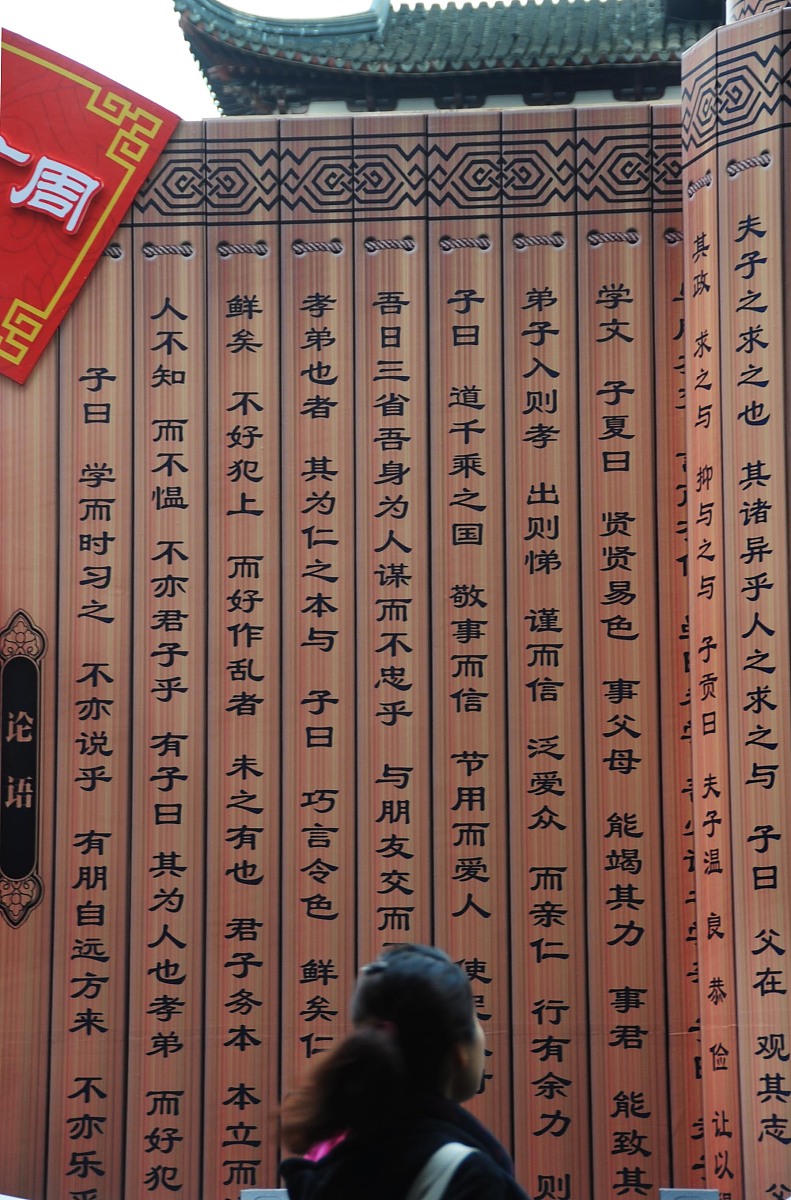 周
论语
子曰 学而时习之 不亦说乎 有朋自远方来 不亦乐乎
人不知 而不愠 不亦君子乎 有子曰 其为人也孝弟 而好犯
鲜矣 不好犯上 而好作乱者 未之有也 君子务本 本立而
孝弟也者 其为仁之本与 子曰 巧言令色 鲜矣仁
吾日三省吾身为人谋而不忠乎 与朋友交而
子曰 道千乘之国 敬事而信 节用而爱人 使民
弟子入则孝 出则悌 谨而信 泛爱众 而亲仁 行有余力 则
学文 子夏曰 贤贤易色 事父母 能竭其力 事君 能致其
其政 求之与 抑与之与 子贡曰 夫子温 良 恭 俭 让以
夫子之求之也 其诸异乎人之求之与 子曰 父在 观其志